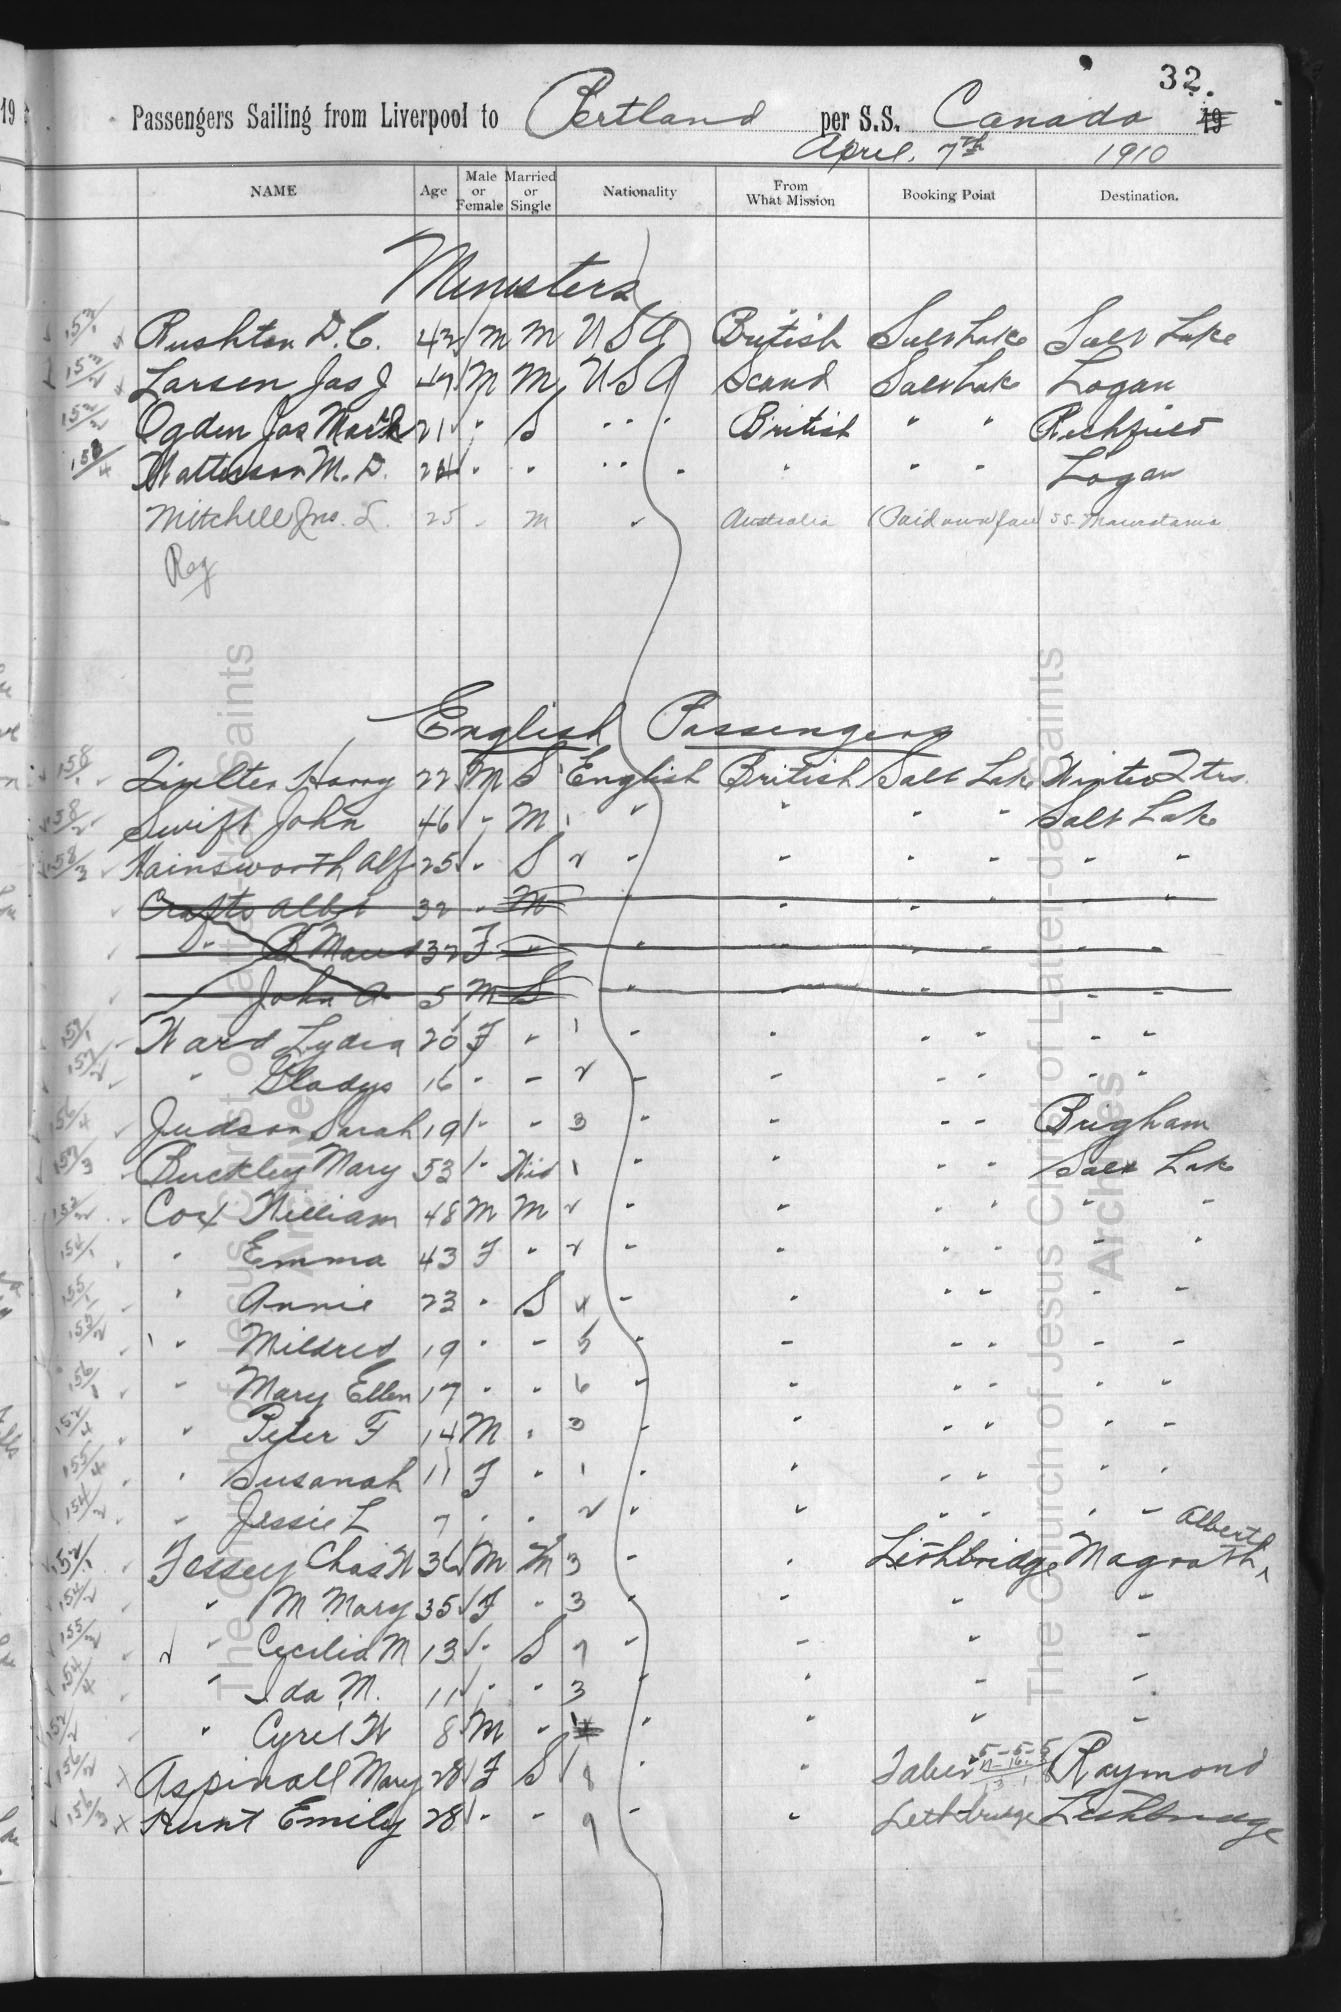 32.
Passengers Sailing from Liverpool to Portland per S.S. Canada 19
April. 7th 1910
NAME Age Male or Female Married or Single Nationality From What Mission Booking Point Destination.
Ministers
152/1 Rushton D. C. 42 M M U S A British Salt Lake Salt Lake
152/2 Larsen Jas J 47 M M U S A Scand Salt Lake Logan
152/2 Ogden Jas Mark 21 " S " " " British " " Richfield
158/4 Watterson M. D. 24 " " " " " " " " Logan
Mitchell Jno. L. 25 " M " Australia (Paid own fare) SS. Mauretania
Reg
English Passengers
158/1 Harry 22 M S English British Salt Lake Winter Qtrs.
158/2 Swift John 46 " M 1 " " " " Salt Lake
158/3 Hainsworth Alf 25 " S 2 " " " " " "
Crafts Albt 32 " M " " " " "
" B Maud 32 F " " " " " "
John A 5 M S " " " " " "
157/1 Ward Lydia 20 F " 1 " " " " " "
157/2 " Gladys 16 " " 2 " " " " " "
156/4 Judson Sarah 19 " " 3 " " " " Brigham
157/3 Buckley Mary 53 " Wid 1 " " " " Salt Lake
152/2 Cox William 48 M M 2 " " " " " "
154/1 " Emma 43 F " 2 " " " " " "
155/1 " Annie 23 " S 4 " " " " " "
155/2 " Mildred 19 " " 5 " " " " " "
156/1 " Mary Ellen 17 " " 6 " " " " " "
152/4 " Peter F 14 M " 3 " " " " " "
155/4 " Susanah 11 F " 1 " " " " " "
154/2 " Jessie L 7 " " 2 " " " " " "
152/1 Fessey Chas W 36 M M 3 " " Lethbridge Magrath, Alberta
154/2 " M Mary 35 F " 3 " " " "
155/3 " Cecilia M 13 " S 7 " " " "
154/4 " Ida M. 11 " " 3 " " " "
152/2 " Cyril W 8 M " " " " "
156/2 Aspinall Mary 28 F S 8 " " Taber 5-5-5 Raymond
156/3 Hunt Emily 28 " " 9 " " Lethbridge Lethbridge
The Church of Jesus Christ of Latter-day Saints
Archives
The Church of Jesus Christ of Latter-day Saints
Archives